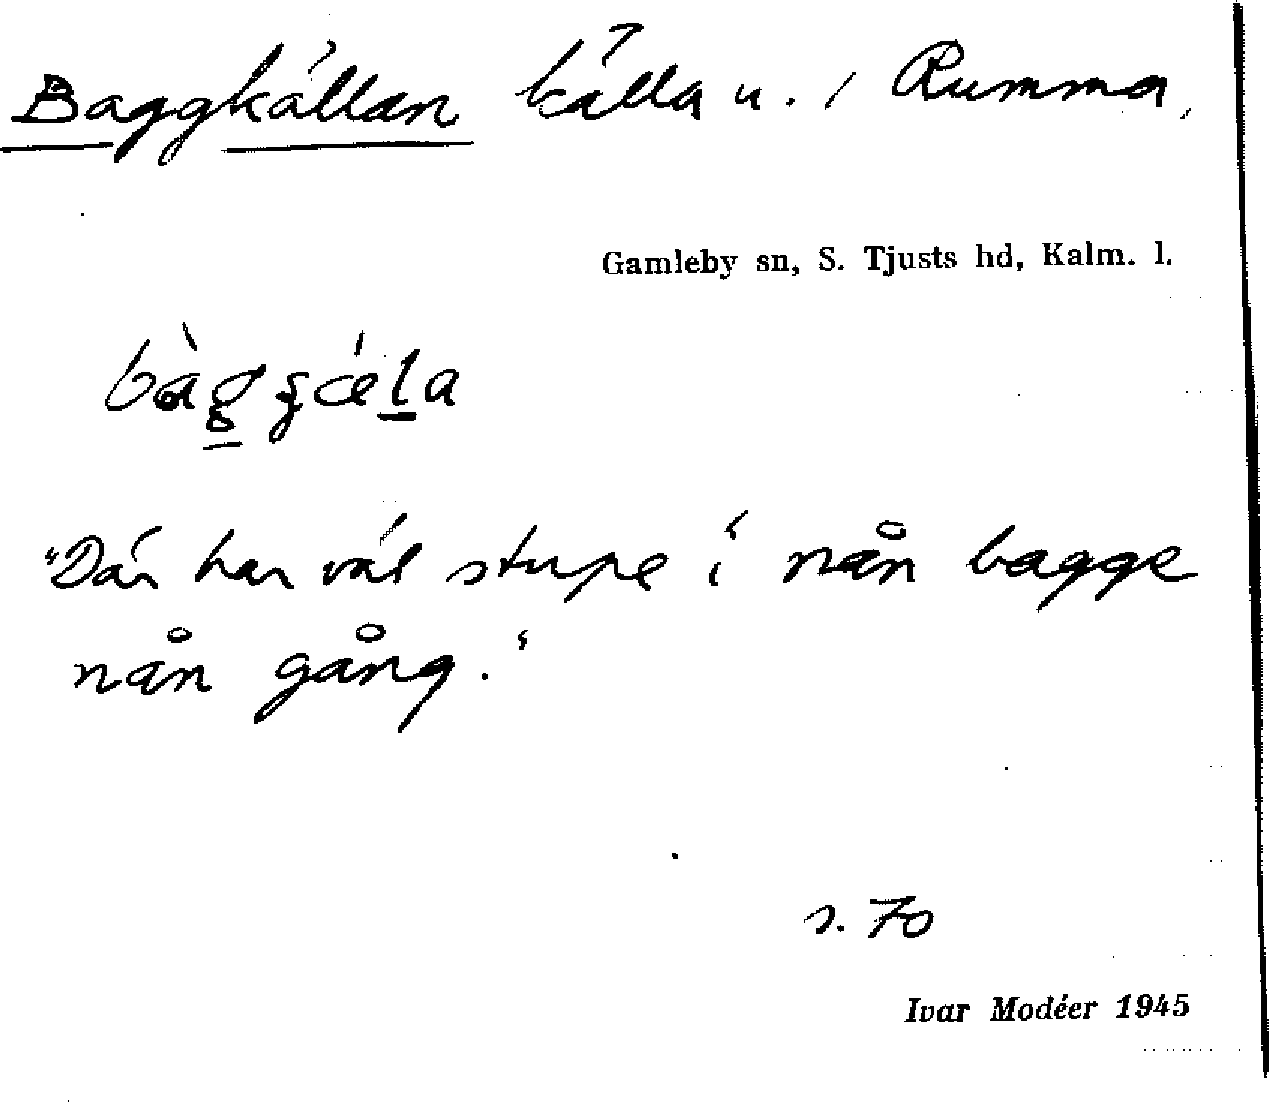 Baggkällan källa u. i Rumma,
Gamleby sn, S. Tjusts hd, Kalm. l.
"Där har väl stupe i nån bagge
nån gång."
s. 70
Ivar Modéer 1945